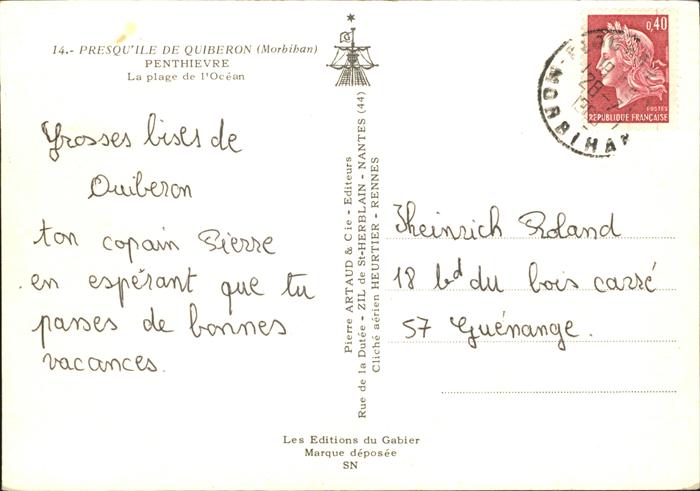 14.- PRESQU'ILE DE QUIBERON (Morbihan)
PENTHIEVRE
La plage de l'Océan
Grosses bises de
Quiberon
ton copain Pierre
en espérant que tu
passes de bonnes
vacances.
Pierre ARTAUD & Cie - Editeurs
Rue de la Dutée - ZIL de St-HERBLAIN - NANTES (44)
Cliché aérien HEURTIER - RENNES
0,40
POSTES
REPUBLIQUE FRANÇAISE
MORBIHAN
Roland
18 bd du bois carré
57 Guénange.
Les Editions du Gabier
Marque déposée
SN